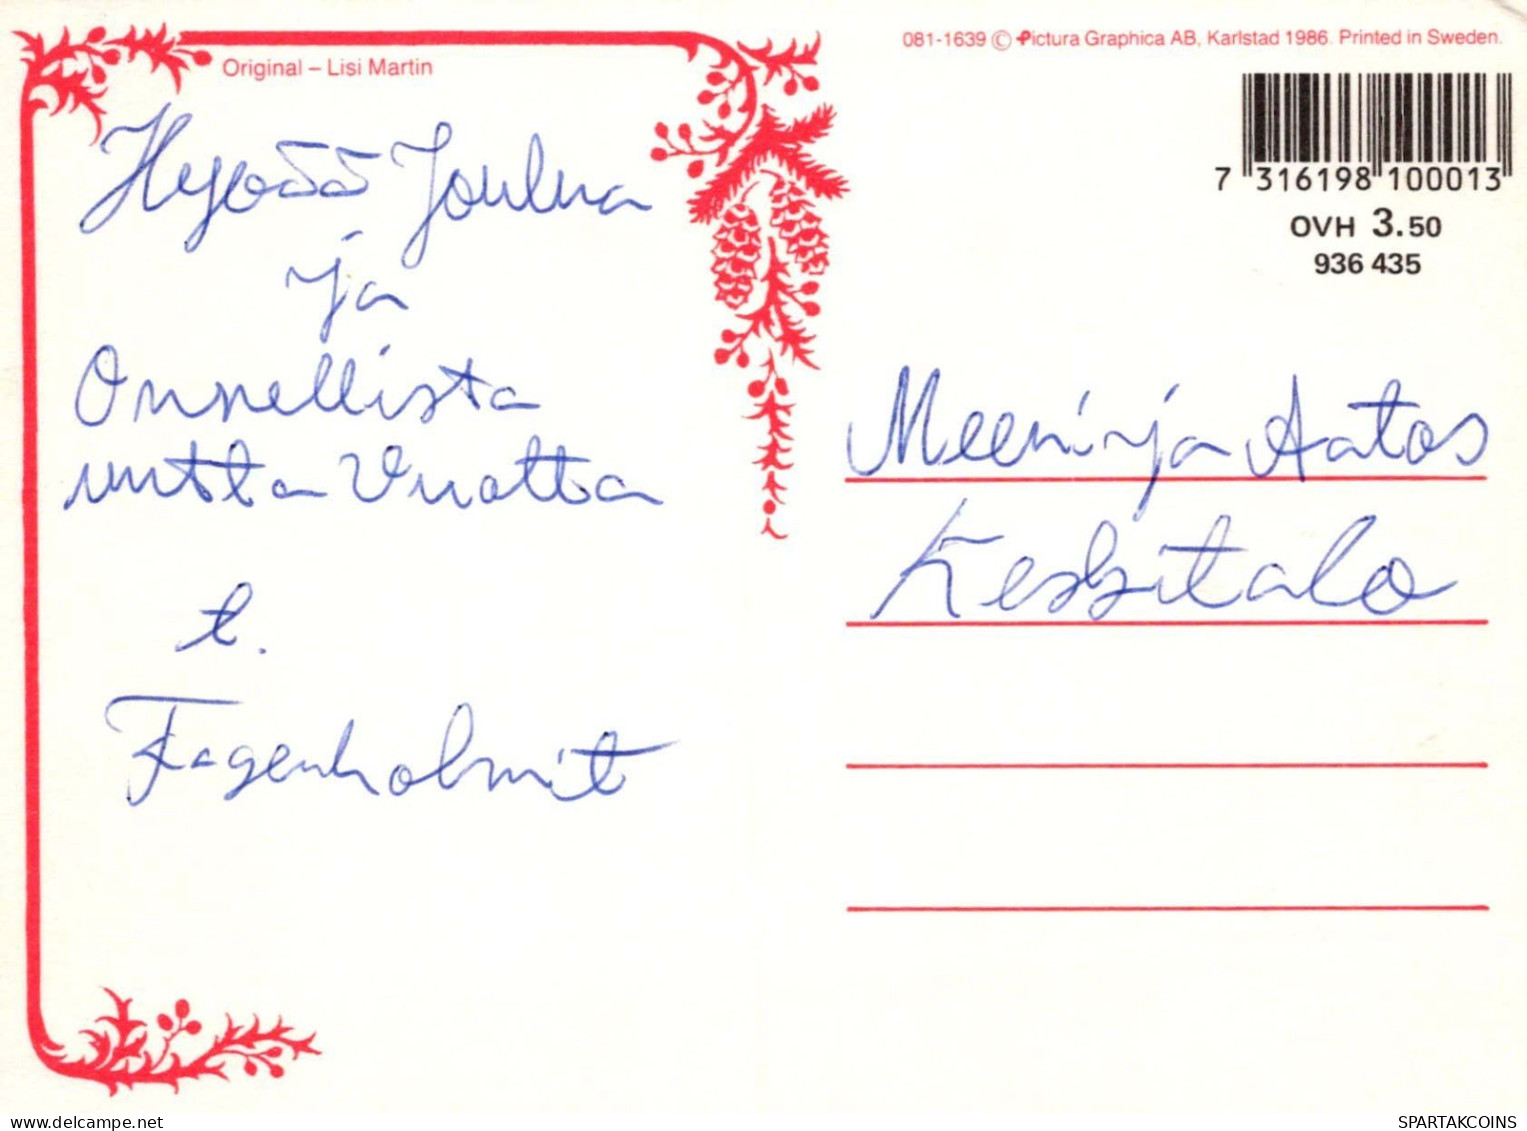 Original – Lisi Martin
081-1639 © Pictura Graphica AB, Karlstad 1986. Printed in Sweden.
7 316198 100013
OVH 3.50
936 435
Hyvää Joulua
ja
Onnellista
uutta Vuotta
t.
Fagerholmit
Meeri ja Aatos
Keskitalo
delcampe.net
SPARTAKCOINS